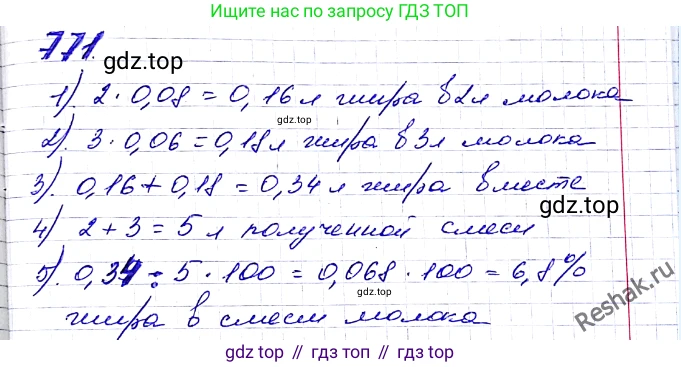 Ищите нас по запросу ГДЗ ТОП
771.
gdz.top
1). 2 · 0,08 = 0,16 л жира в 2л молока
gdz.top
2). 3 · 0,06 = 0,18 л жира в 3л молока
3). 0,16 + 0,18 = 0,34 л жира вместе
gdz.top
4). 2 + 3 = 5 л полученной смеси
5). 0,34 : 5 · 100 = 0,068 · 100 = 6,8%
gdz.top
жира в смеси молока
Reshak.ru
gdz top // гдз топ // gdz top